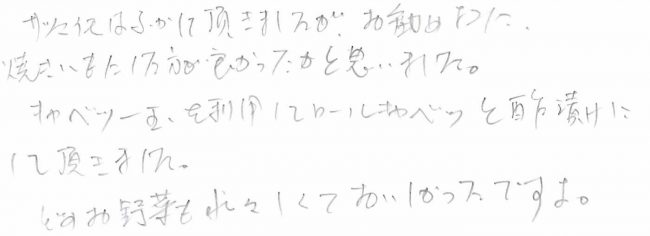 サツマ芋はふかして頂きましたが、お勧めように、
焼きいもにした方が良かったかと思いました。
キャベツ一玉、を利用してロールキャベツと酢漬けに
して頂きました。
どのお野菜もみずみずしくておいしかったですよ。